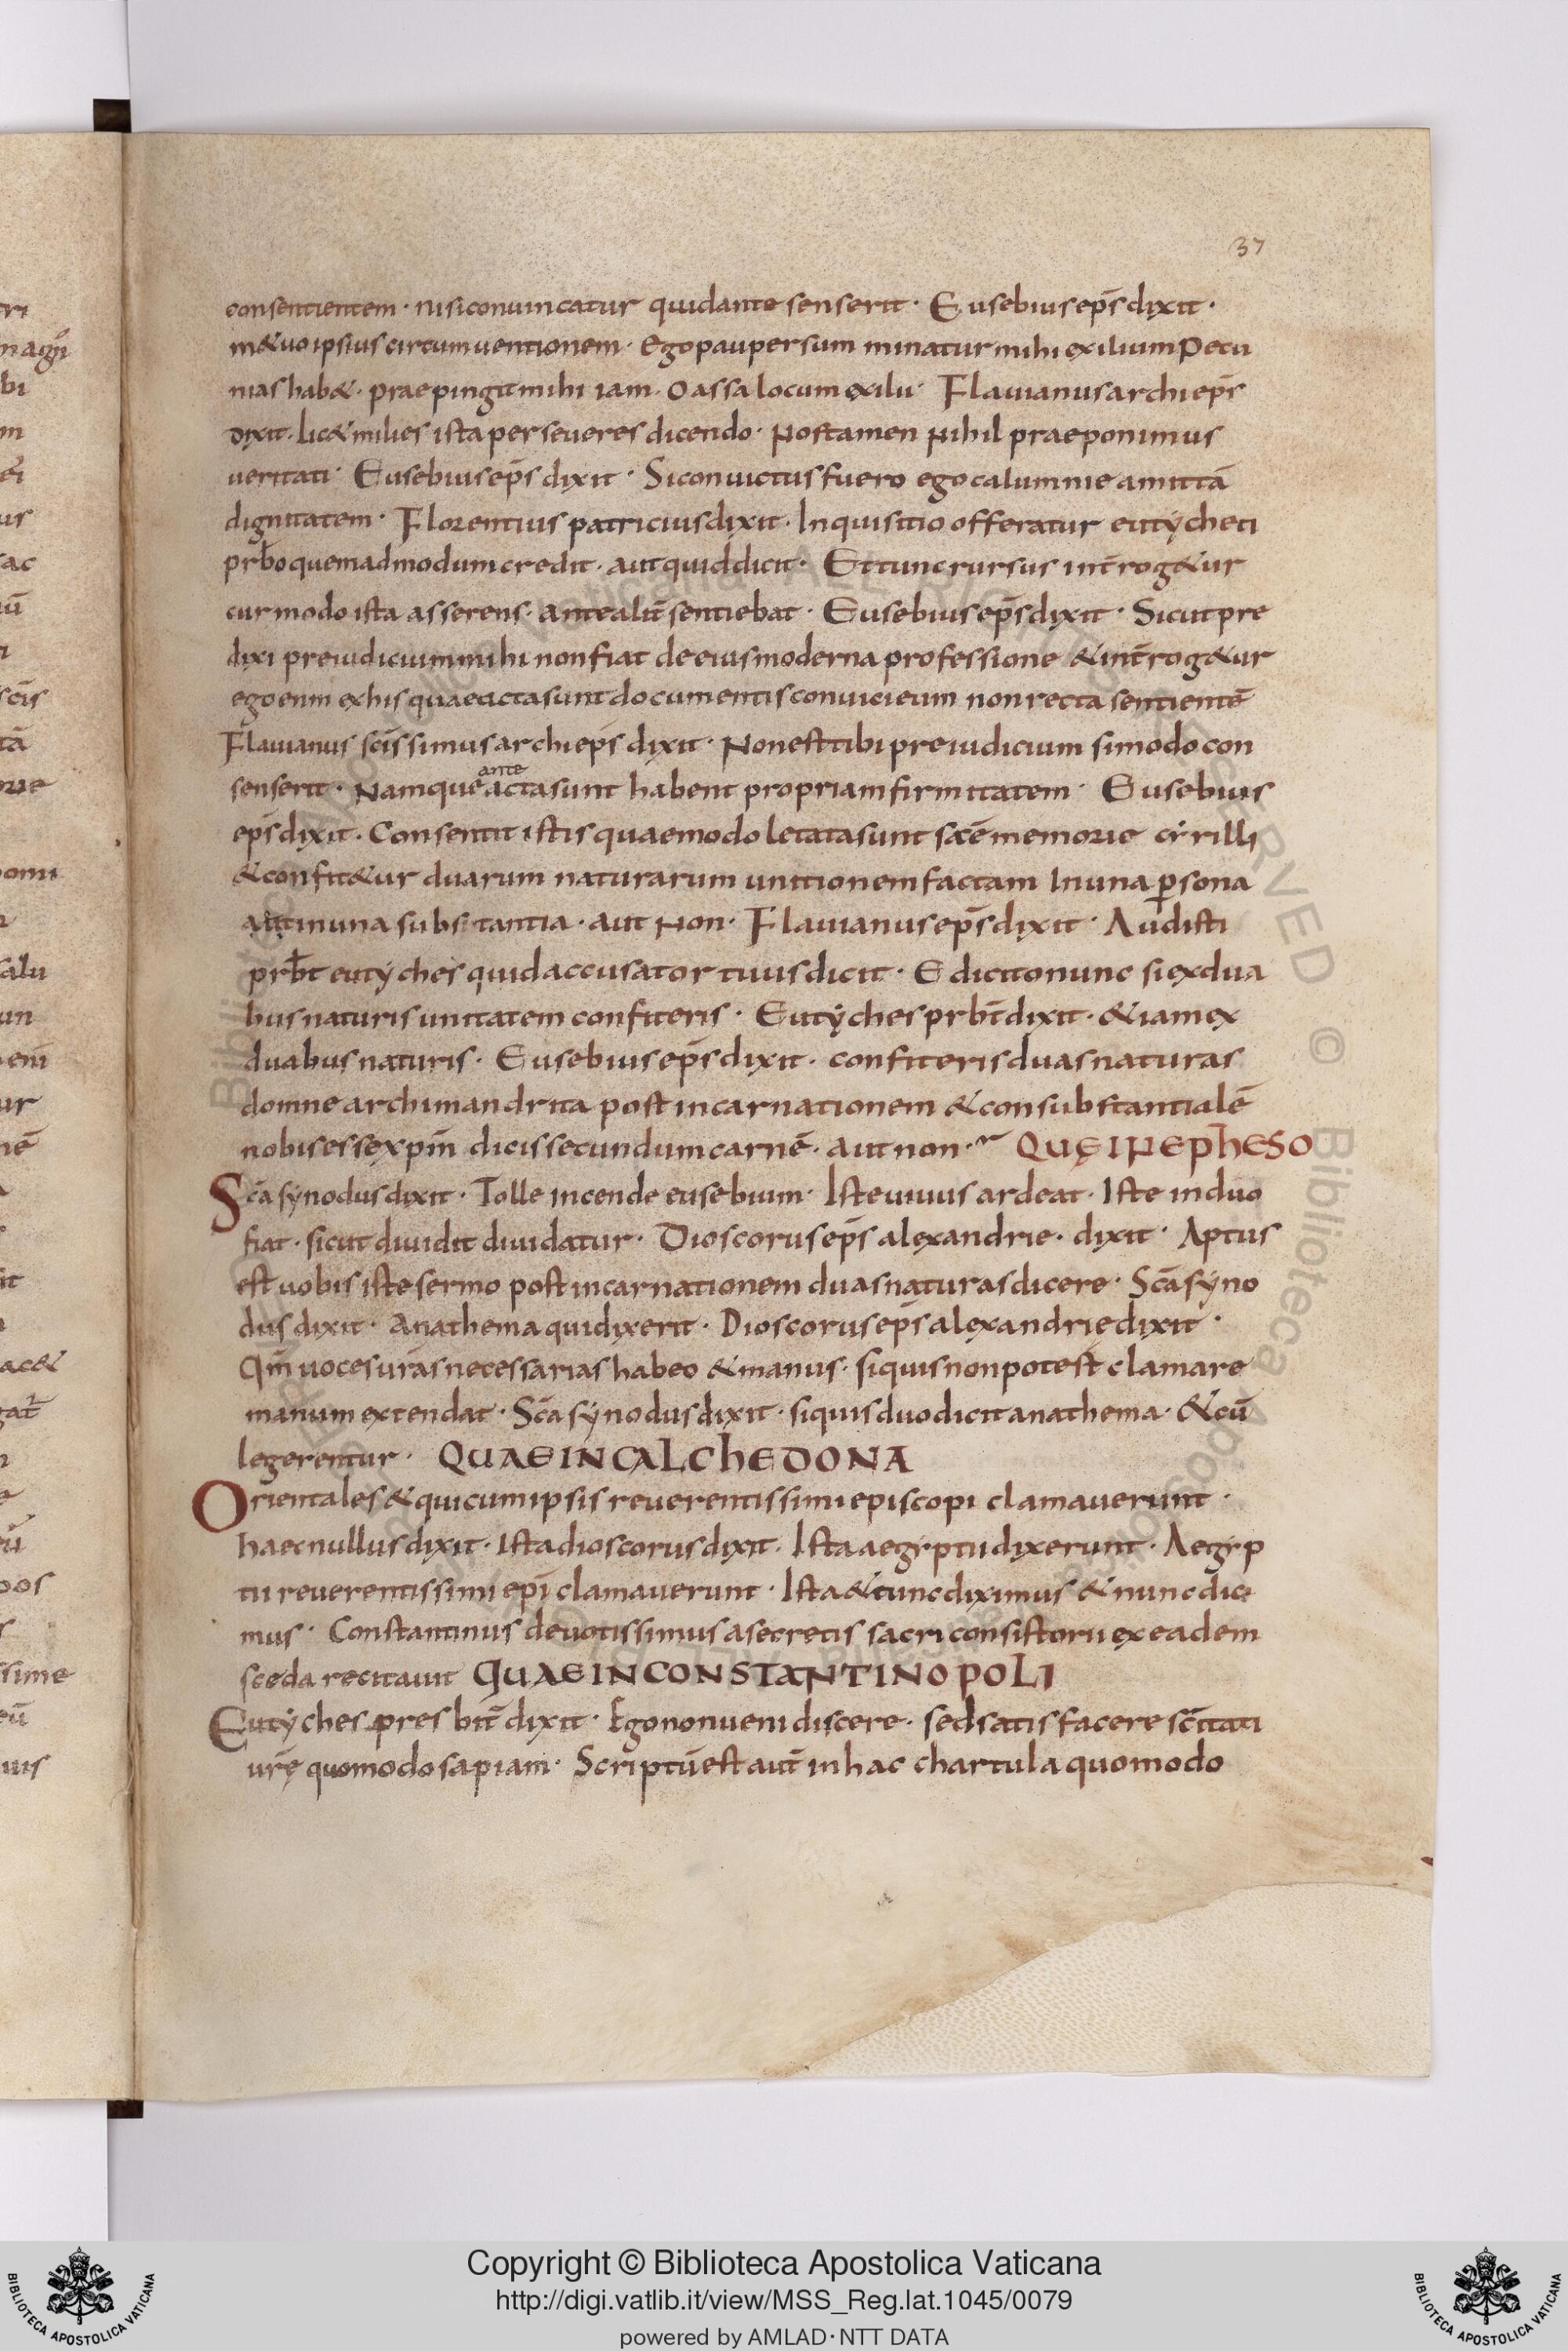 37
consentientem · nisi conuincatur quid ante senserit · Eusebius ep̄s dixit ·
m&uo ipsius circumuentionem · Ego pauper sum minatur mihi exilium Pecu
nias hab& · praepingit mihi iam · oassa locum exilii · Flauianus archi ep̄s
dixit · lic& milies ista perseueres dicendo · Nos tamen Nihil praeponimus
ueritati · Eusebius ep̄s dixit · Si conuictus fuero ego calumnie amittā
dignitatem · Florentius patricius dixit · Inquisitio offeratur eutycheti
prb̄o quemadmodum credit · aut quid dicit · Et tunc rursus int̄rog&ur
cur modo ista asserens · ante alit̄ sentiebat · Eusebius ep̄s dixit · Sicut pre
dixi preiudicium mihi non fiat de eius moderna professione &int̄rog&ur
ego enim ex his quae acta sunt documentis conuici eum non recta sentientē
Flauianus sc̄issimus archi ep̄s dixit · Non est tibi preiudicium si modo con
senserit · Namque ante acta sunt habent propriam firmitatem · Eusebius
ep̄s dixit · Consentit istis quae modo letata sunt sc̄ē memorie cyrilli
&confit&ur duarum naturarum unitionem factam In una p̱sona
aut in una substantia · aut Non · Flauianus ep̄s dixit · Audisti
prb̄t eutyches quid accusator tuus dicit · Edicito nunc si ex dua
bus naturis unitatem confiteris · Eutyches prb̄t dixit · &iam ex
duabus naturis · Eusebius ep̄s dixit · confiteris duas naturas
domne archimandrita post incarnationem &consubstantialē
nobis esse xp̄m dicis secundum carnē · aut non · QUĘ IN EPhESO
Sc̄a synodus dixit · Tolle incende eusebium · Iste uiuus ardeat · Iste in duo
fiat · sicut diuidit diuidatur · Dioscorus ep̄s alexandrie · dixit · Aptus
est uobis iste sermo post incarnationem duas naturas dicere · Sc̄a syno
dus dixit · Anathema qui dixerit · Dioscorus ep̄s alexandrie dixit ·
Qm̄ uoces ur̄as necessarias habeo &manus · si quis non potest clamare
manum extendat · Sc̄a synodus dixit · si quis duo dicit anathema · &cū
legerentur · QUAE IN CALChEDONA
Orientales &qui cum ipsis reuerentissimi episcopi clamauerunt ·
haec nullus dixit · Ista dioscorus dixit · Ista aegyptii dixerunt · Aegyp
tii reuerentissimi ep̄i clamauerunt · Ista &tunc diximus &nunc dici
mus · Constantinus deuotissimus a secretis sacri consistorii ex eadem
sceda recitauit QUAE IN CONSTANTINOPOLI
Eutyches presbit̄ dixit · Ego non ueni discere · sed satisfacere sc̄itati
ur̄ę quomodo sapiam · Scriptū est aut̄ in hac chartula quomodo
Copyright © Biblioteca Apostolica Vaticana
http://digi.vatlib.it/view/MSS_Reg.lat.1045/0079
powered by AMLAD·NTT DATA